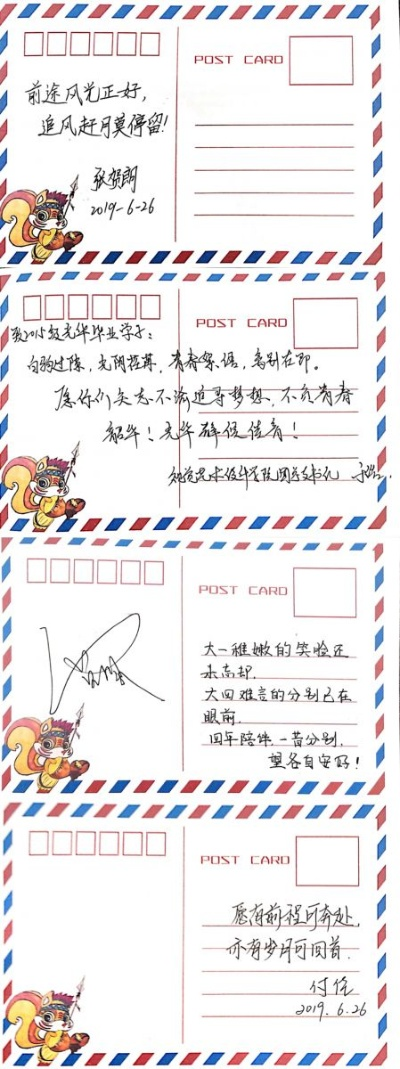 POST CARD
前途风光正好,
追风赶月莫停留!
张贺朗
2019-6-26
POST CARD
致2015级光华毕业学子:
白驹过隙,光阴荏苒,青春絮语,离别在即。
愿你们矢志不渝追寻梦想,不负青春
韶华!光华静候佳音!
视觉艺术设计学院团总支书记
POST CARD
大一稚嫩的笑脸还
未忘却,
大四难言的分别已在
眼前.
四年陪伴,一昔分别,
望各自安好!
POST CARD
愿有前程可奔赴,
亦有岁月可回首.
付佺
2019.6.26